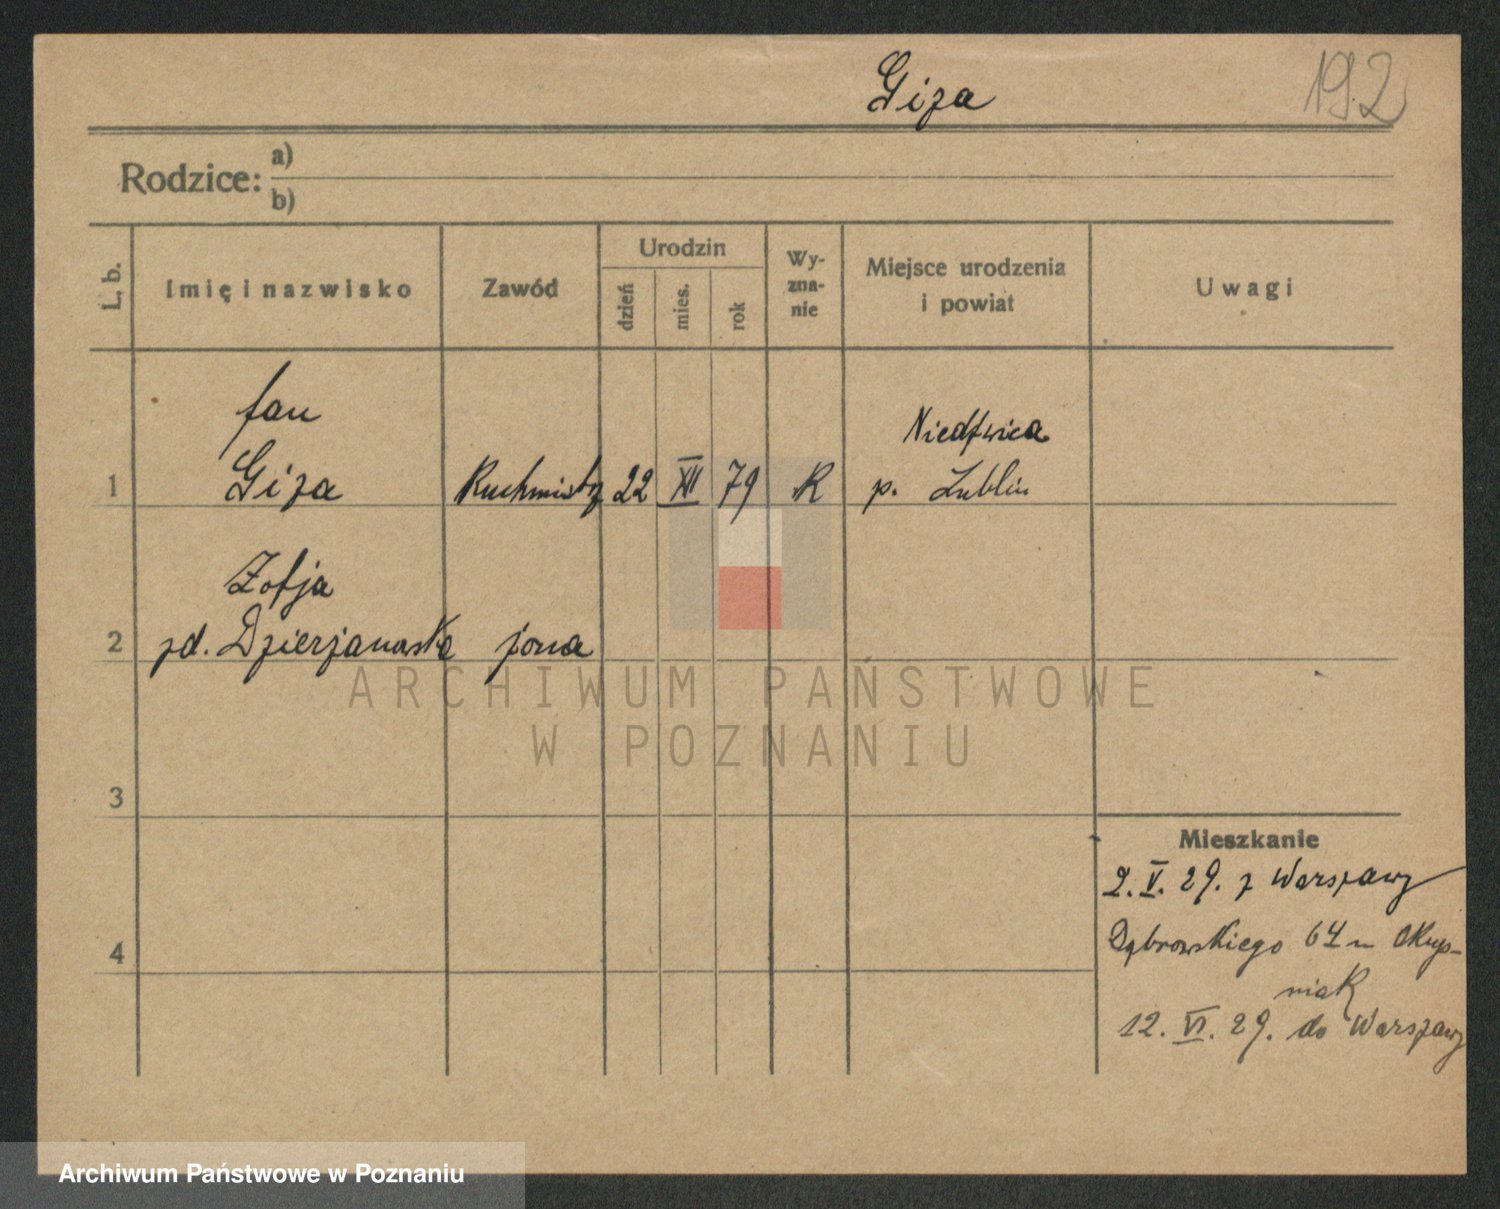 Giza
192
Rodzice: a)
b)
L. b.
Imię i nazwisko
Zawód
Urodzin
dzień
mies.
rok
Wy-
zna-
nie
Miejsce urodzenia
i powiat
Uwagi
Jan
Niedźwica
1 Giza Kuchmistrz 22 XII 79 R p. Lublin
Zofja
2 zd. Dzierżanowska żona
3
4
Mieszkanie
2. V. 29. z Warszawy
Dąbrowskiego 64 m
niak
12. VI. 29. do Warszawy
ARCHIWUM PAŃSTWOWE
W POZNANIU
Archiwum Państwowe w Poznaniu